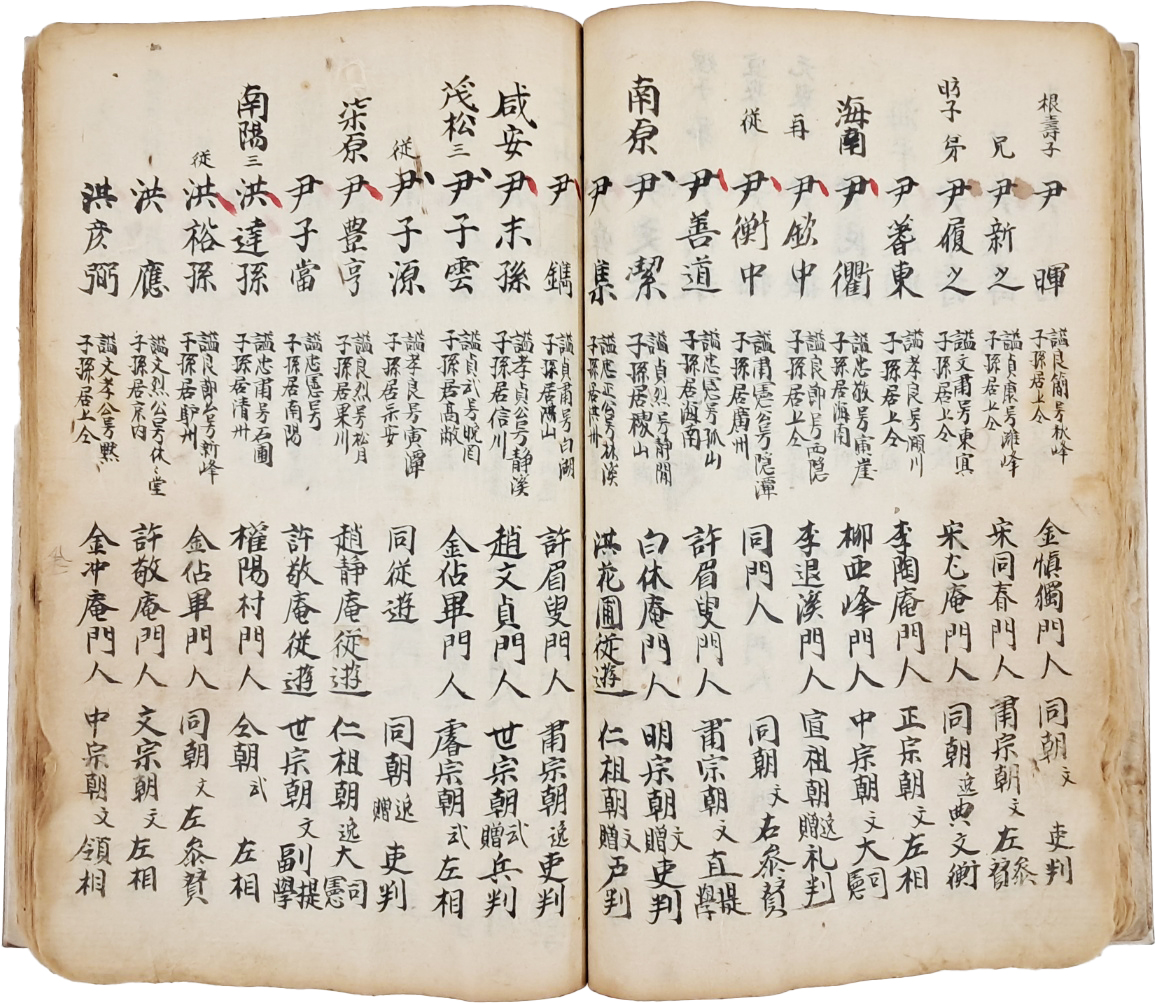 根壽子 尹暉 諡良簡号秋峰 子孫居上仝 金愼獨門人 同朝文 吏判
兄 尹新之 諡貞康号潍峰 子孫居上仝 宋同春門人 肅宗朝文 左參贊
昉子 弟 尹履之 諡文肅号東冥 子孫居上仝 宋尤庵門人 同朝逸 典文衡
尹蓍東 諡孝良号瀕川 子孫居上仝 李陶庵門人 正宗朝文 左相
海南 尹衢 諡忠敬号寅崖 子孫居海南 柳西峰門人 中宗朝文 大司憲
再 尹欽中 諡良節号西隐 子孫居上仝 李退溪門人 宣祖朝逸贈 礼判
從 尹衡中 諡肅憲公号隐潭 子孫居廣州 同門人 同朝文 右叅贊
尹善道 諡忠憲号孤山 子孫居海南 許眉叟門人 肅宗朝文 直提學
南原 尹潔 諡貞烈号靜閒 子孫居稷山 白休庵門人 明宗朝文贈 吏判
尹集 諡忠正公号林溪 子孫居洪州 洪花圃從遊 仁祖朝文贈 戶判
尹鐫 諡貞肅号白湖 子孫居陽山 許眉叟門人 肅宗朝逸 吏判
咸安 尹末孫 諡孝貞公号静溪 子孫居信川 趙文貞門人 世宗朝武贈 兵判
茂松三 尹子雲 諡貞武号晩因 子孫居高敞 金佔畢門人 睿宗朝武 左相
從 尹子源 諡孝良号寅潭 子孫居示安 同從遊 同朝逸贈 吏判
柒原 尹豊亨 諡良烈号松月 子孫居果川 趙静庵從遊 仁祖朝逸 大司憲
尹子當 諡忠憲号 子孫居南陽 許敬庵從遊 世宗朝文 副提學
南陽三 洪達孫 諡忠肅号石圃 子孫居清州 權陽村門人 仝朝武 左相
從 洪裕孫 諡良節公号新峰 子孫居郭州 金佔畢門人 同朝文 左叅贊
洪應 諡文烈公号休々堂 子孫居京內 許敬庵門人 文宗朝文 左相
洪彦弼 諡文孝公号默 子孫居上仝 金冲庵門人 中宗朝文 領相